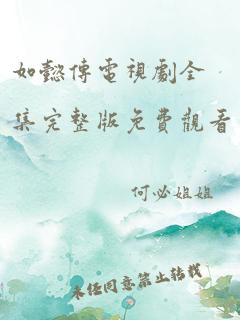 如懿傳電視劇全
集完整版免費觀看
何必姐姐
未经同意禁止转载